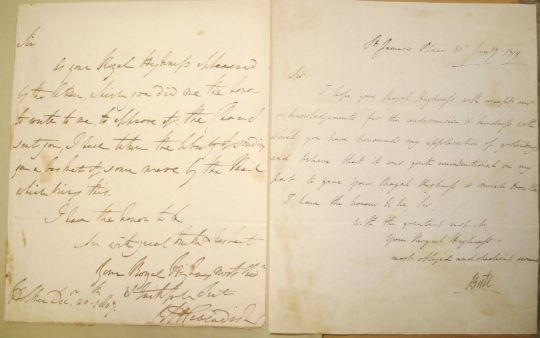 Sir
as your Royal Highness appeared
by the letter, which you did me the honor
to write to me, to approve of the
sent you, I have taken the liberty of sending
you a basket of some more by the Mail
which brings this.
I have the honor to be
Sir with great truth & respect
Your Royal Highness' most
& faithful
Decr. 20th 1809
St James's Place 31st Jany 1819
Sir
I hope your Royal Highness will accept my
acknowledgements for the condescension & kindness with
which you have honoured my application of yesterday
and believe that it was quite unintentional on my
part to give Your Royal Highness so much trouble
I have the honour to be Sir,
with the greatest respect
Your Royal Highness's
most obliged and obedient servant